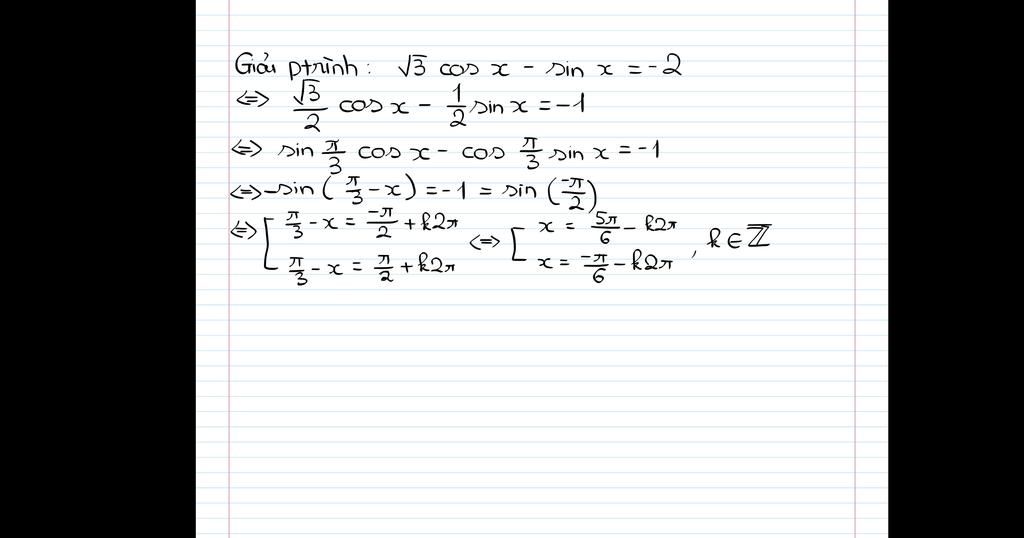 Giải ptrình: √3 cos x - sin x = -2
⇔ √3/2 cos x - 1/2 sin x = -1
⇔ sin π/3 cos x - cos π/3 sin x = -1
⇔ -sin (π/3 - x) = -1 = sin (-π/2)
⇔ [ π/3 - x = -π/2 + k2π ⇔ [ x = 5π/6 - k2π
π/3 - x = π/2 + k2π x = -π/6 - k2π , k ∈ ℤ